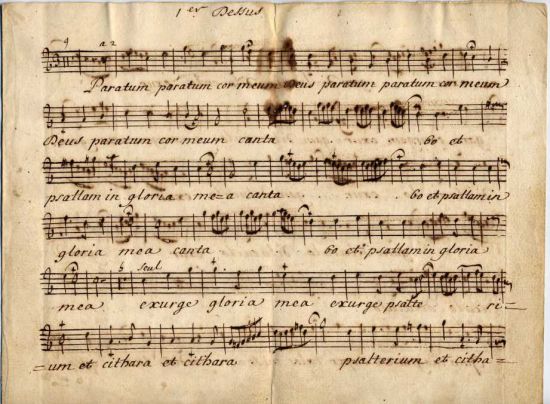 1er Dessus
4 a 2
Paratum paratum cor meum Deus paratum paratum cor meum
Deus paratum cor meum canta bo et
psallam in gloria me=a canta bo et psallam in
gloria mea canta bo et psallam in gloria
seul
mea exurge gloria mea exurge psalte ri=
=um et cithara et cithara psalterium et citha=